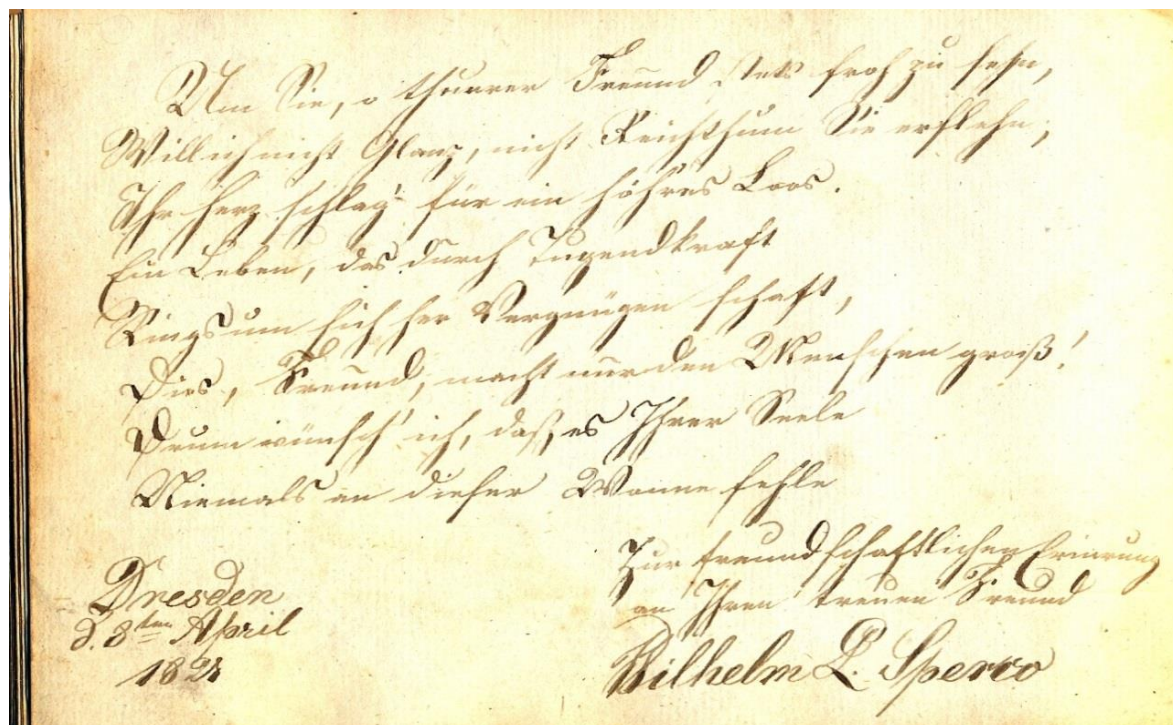 Um Sie, o theurer Freund stets froh zu sehn,
Will ich nicht Glanz, nicht Reichthum Sie erflehn;
Ihr Herz schlag' für ein höh'res Loos.
Ein Leben, das durch Tugendkraft
Rings um sich her Vergnügen schaft,
Dies, Freund, macht nur den Menschen groß!
Drum wünsch' ich, daß es Ihrer Seele
Niemals an dieser Wonne fehle
Zur freundschaftlichen Erinrung
an Ihren treuen Freund
Wilhelm L. Sperco
Dresden
d. 8ten April
182